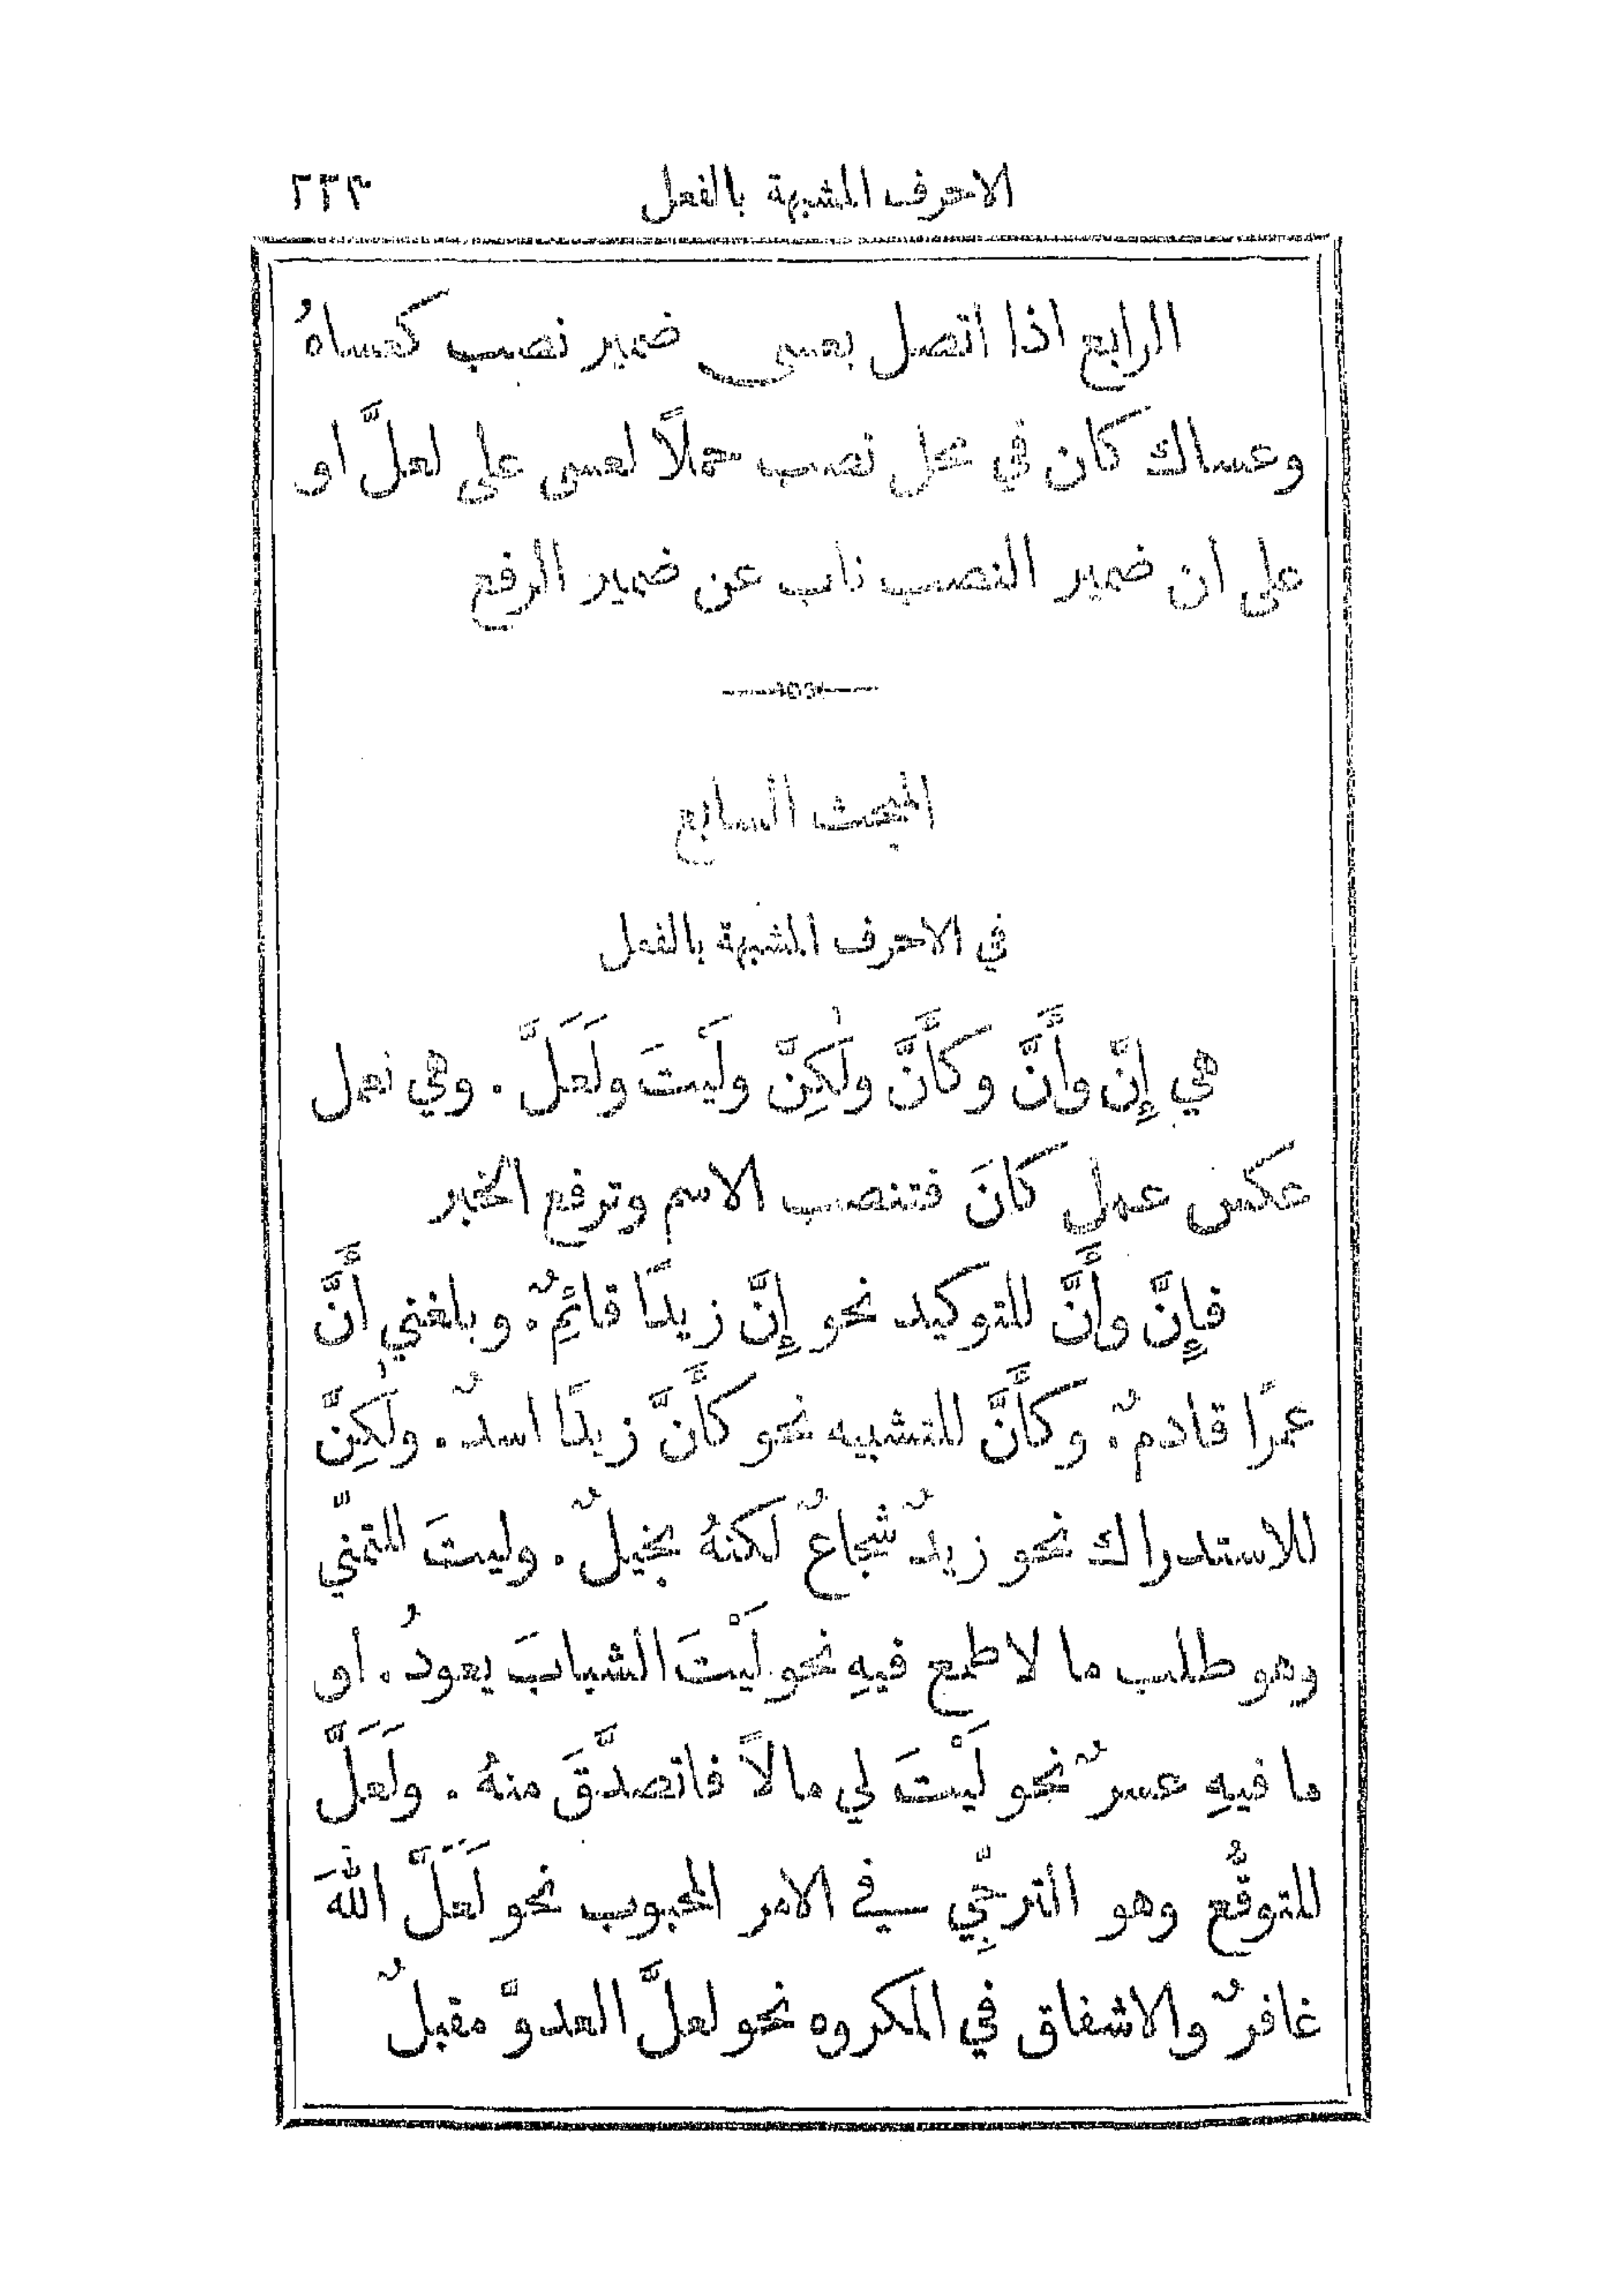 الاحرف المشبهة بالفعل ٢٣٣
الرابع اذا اتصل بعسى ضمير نصب كعساهُ
وعساك كان في محل نصب حملًا لعسى على لعلَّ او
على ان ضمير النصب ناب عن ضمير الرفع
المبحث السابع
في الاحرف المشبهة بالفعل
هي إِنّ وأَنَّ وكأَنَّ ولٰكِنَّ ولَيتَ ولَعَلَّ . وهي تعمل
عكس عمل كانَ فتنصب الاسم وترفع الخبر
فإِنَّ وأَنَّ للتوكيد نحو إِنَّ زيدًا قائِمٌ . وبلغني أَنَّ
عمرًا قادمٌ . وكأَنَّ للتشبيه نحو كأَنَّ زيدًا اسدٌ . ولٰكِنَّ
للاستدراك نحو زيدٌ شجاعٌ لكنهُ بخيلٌ . وليتَ للتمنّي
وهو طلب ما لا طمع فيهِ نحو لَيْتَ الشبابَ يعودُ . او
ما فيهِ عسرٌ نحو لَيْتَ لي مالًا فاتصدَّقَ منهُ . ولَعَلَّ
للتوقُّع وهو الترجِّي في الامر المحبوب نحو لَعَلَّ اللهَ
غافرٌ والاشفاق في المكروه نحو لعلَّ العدوَّ مقبلٌ